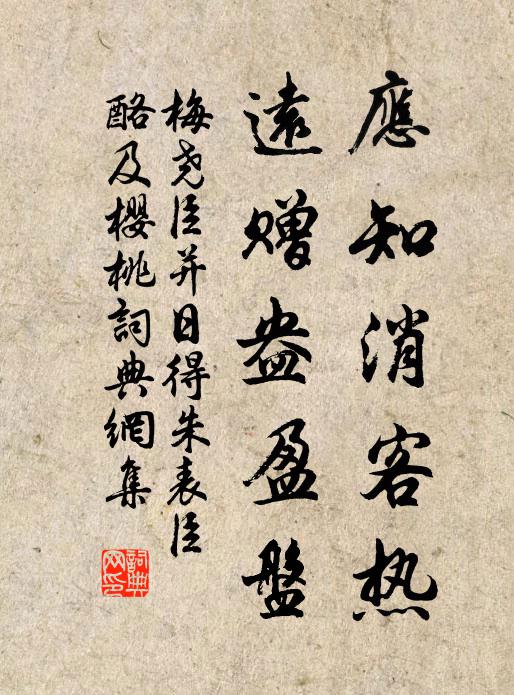 應知消客热
遠赠盎盈盤
梅尧臣并日得朱表臣
酪及樱桃詞典網集
詞典
网印